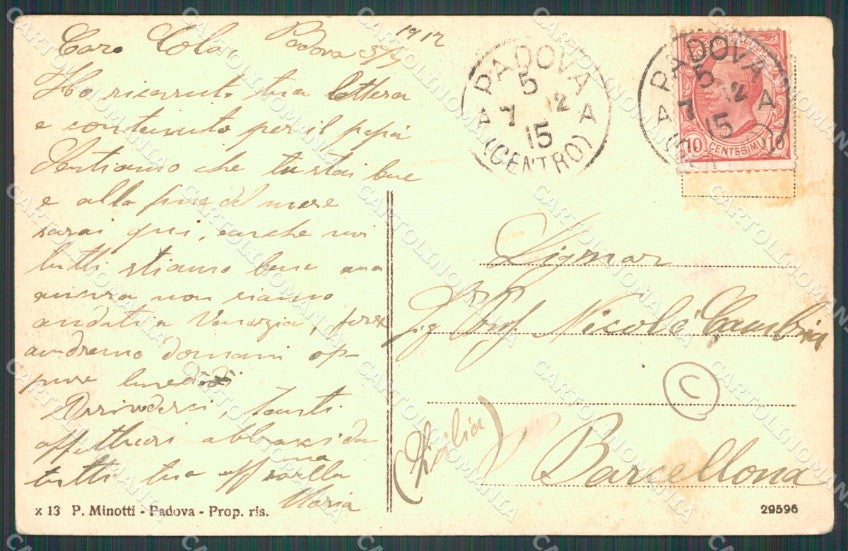 Padova 5/7 1912
Caro
Ho ricevuto tua lettera
e contenuto per il papà
Sentiamo che tu stai bene
e alla fine del mese
sarai qui, anche noi
tutti stiamo bene ma
ancora non siamo
andati a Venezia, forse
andremo domani op-
pure lunedì
Arrivederci, tanti
affettuosi abbracci da
tutti tua
Maria
PADOVA
5
7 12
A A
15
(CENTRO)
PADOVA
5
7 12
A A
15
10 CENTESIMI 10
Signor
Nicolò
(Sicilia)
Barcellona
C
x 13 P. Minotti - Padova - Prop. ris.
29596
CARTOLINOMANIA